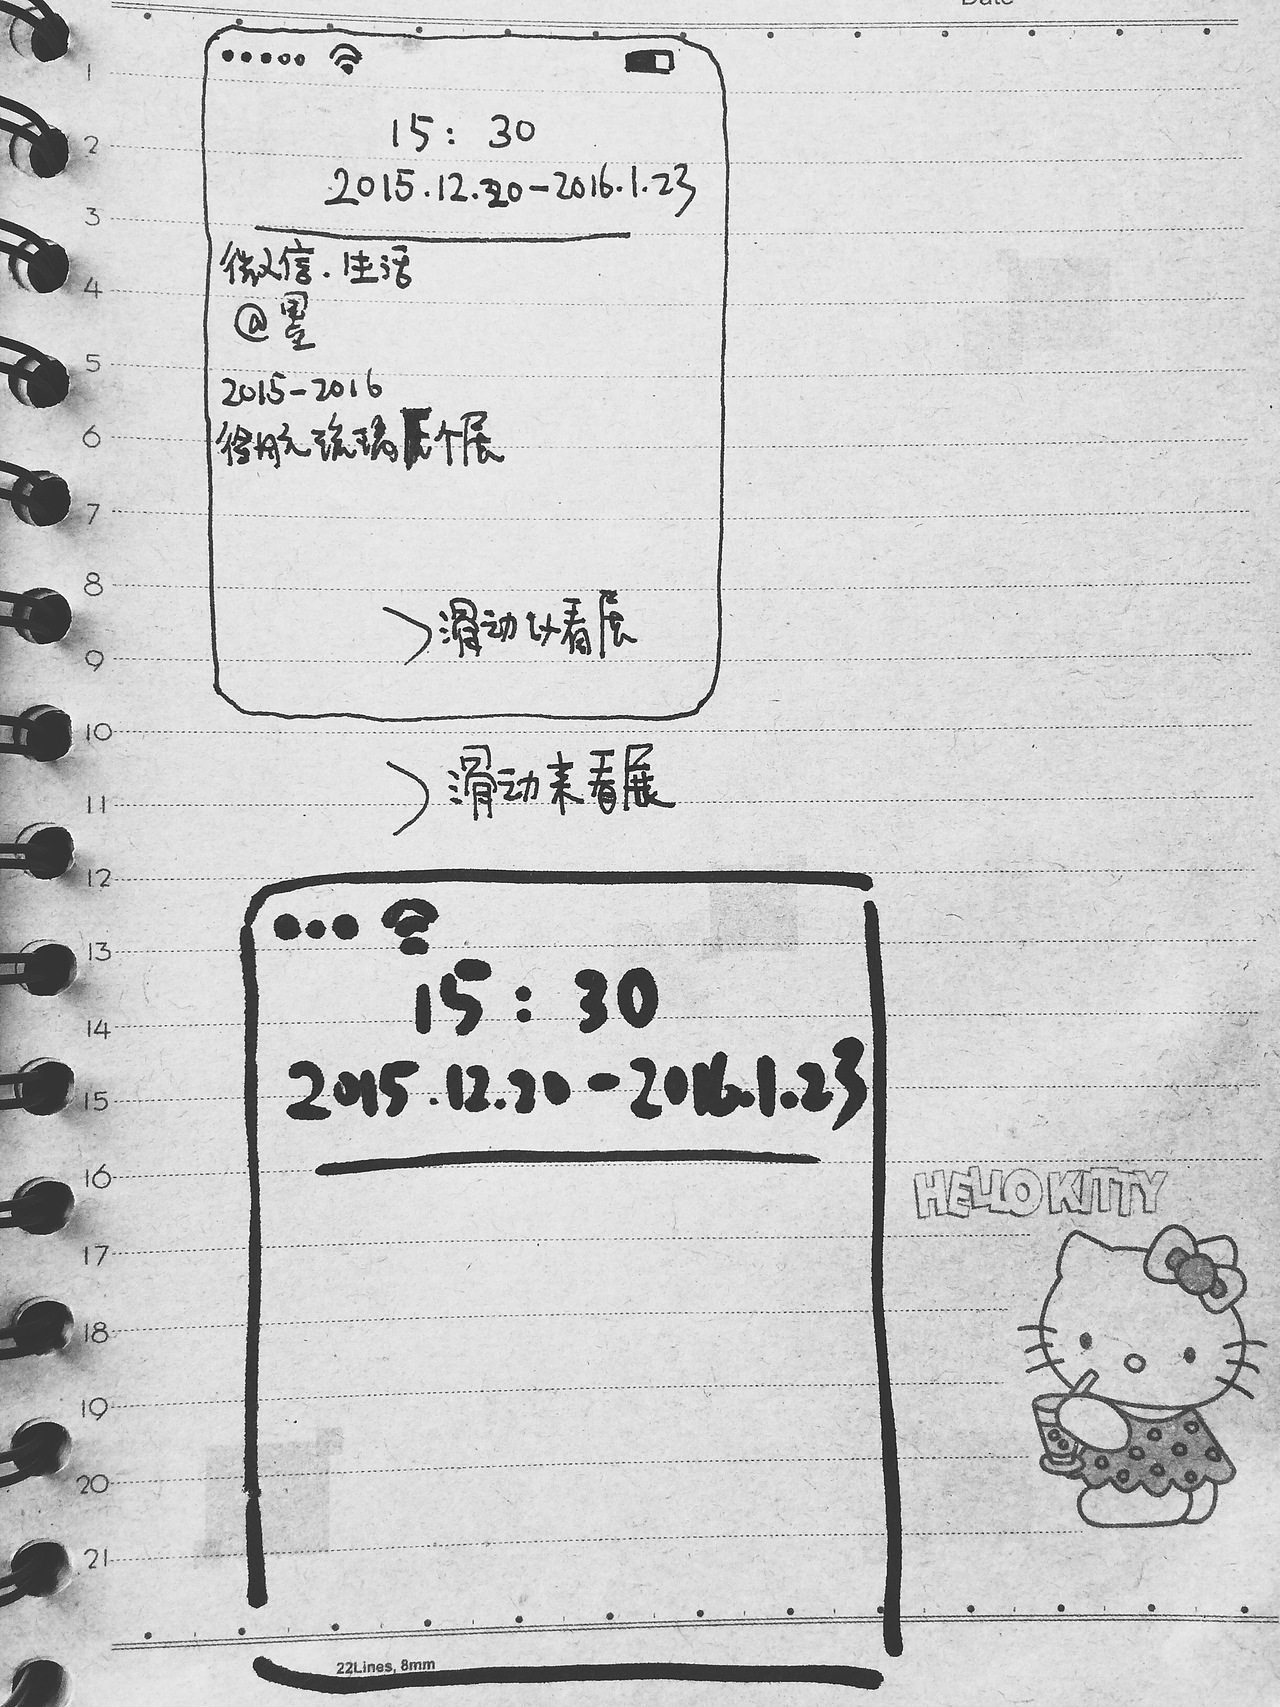 Date
1
2
3
4
5
6
7
8
9
10
11
12
13
14
15
16
17
18
19
20
21
15: 30
2015.12.20-2016.1.23
微信.生活
@墨
2015-2016
徐航琉璃个展
>滑动以看展
>滑动来看展
15: 30
2015.12.20-2016.1.23
HELLO KITTY
22Lines, 8mm